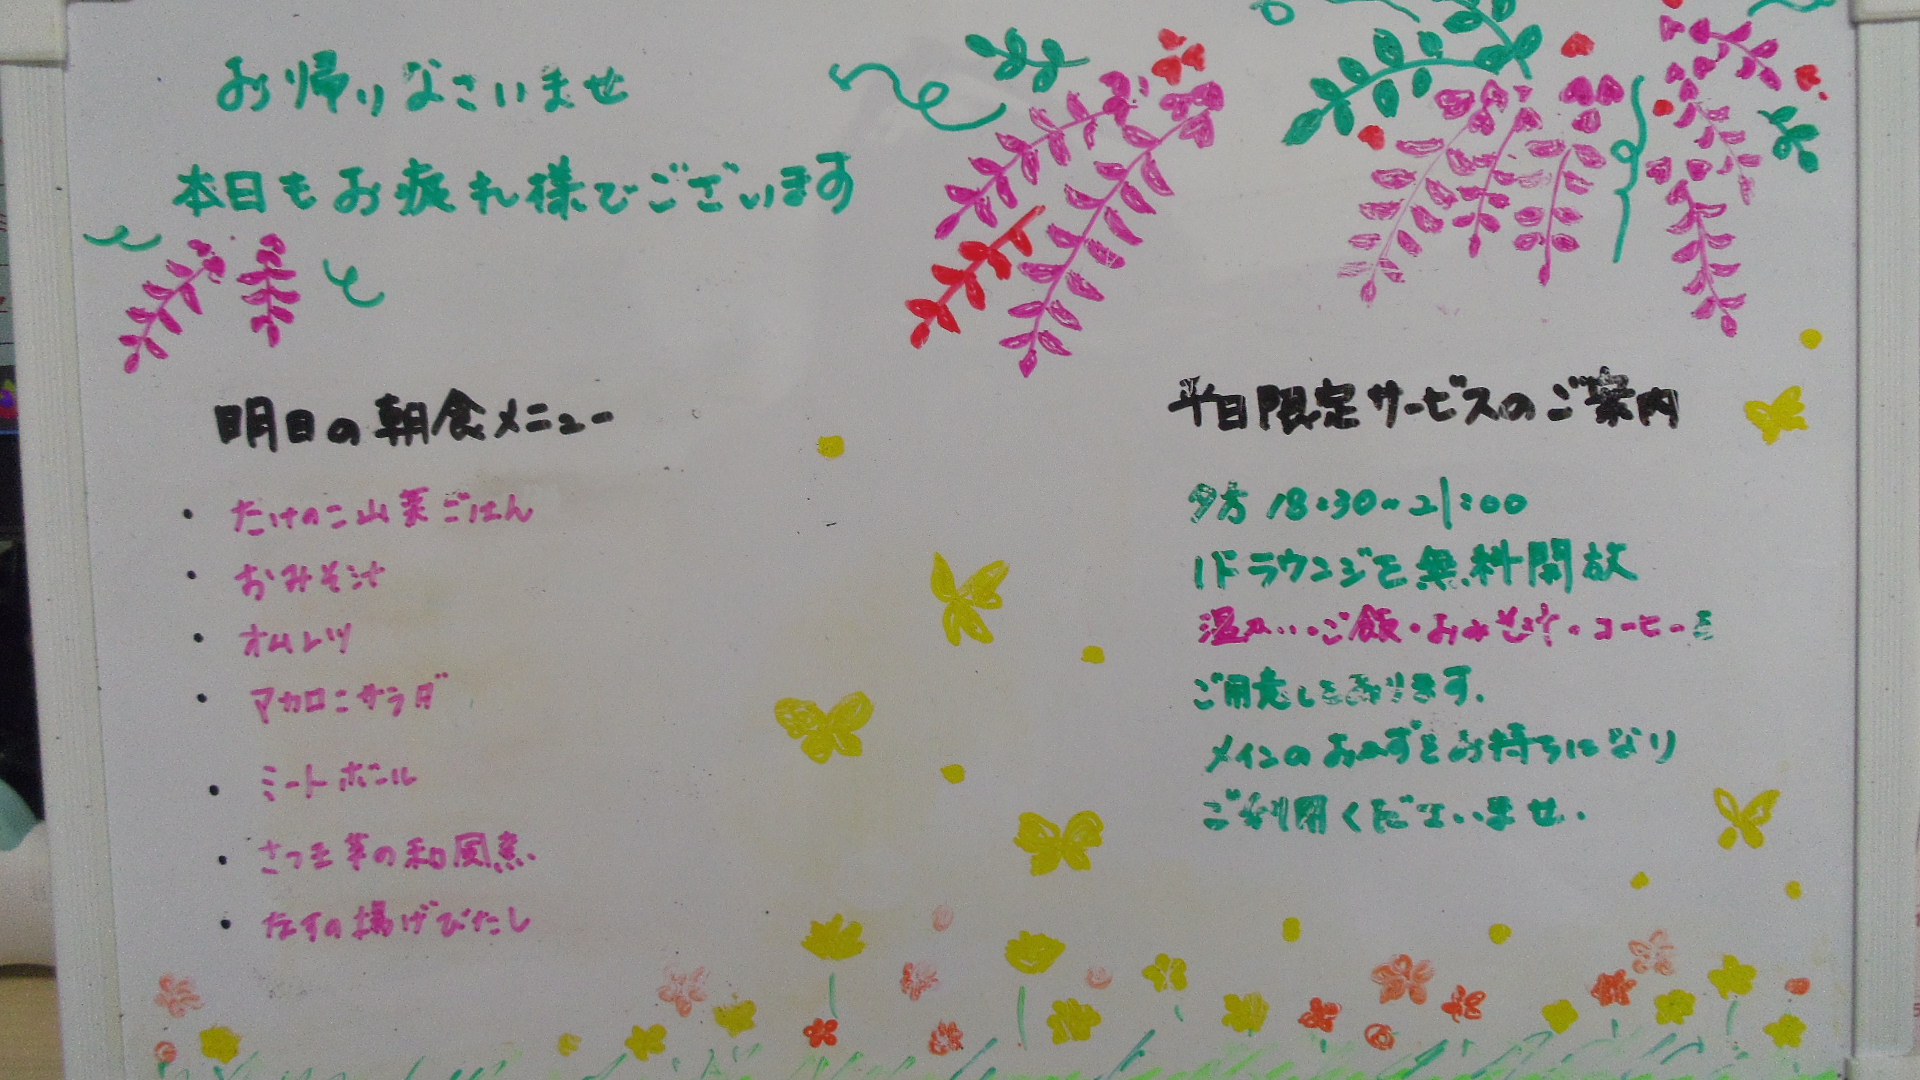 お帰りなさいませ
本日もお疲れ様でございます
明日の朝食メニュー
・たけのこ山菜ごはん
・おみそ汁
・オムレツ
・マカロニサラダ
・ミートボール
・さつま芋の和風煮
・なすの揚げびたし
平日限定サービスのご案内
夕方 18:30~21:00
1Fラウンジを無料開放
温かいご飯・おみそ汁・コーヒーを
ご用意しております。
メインのおかずをお持ちになり
ご利用くださいませ。